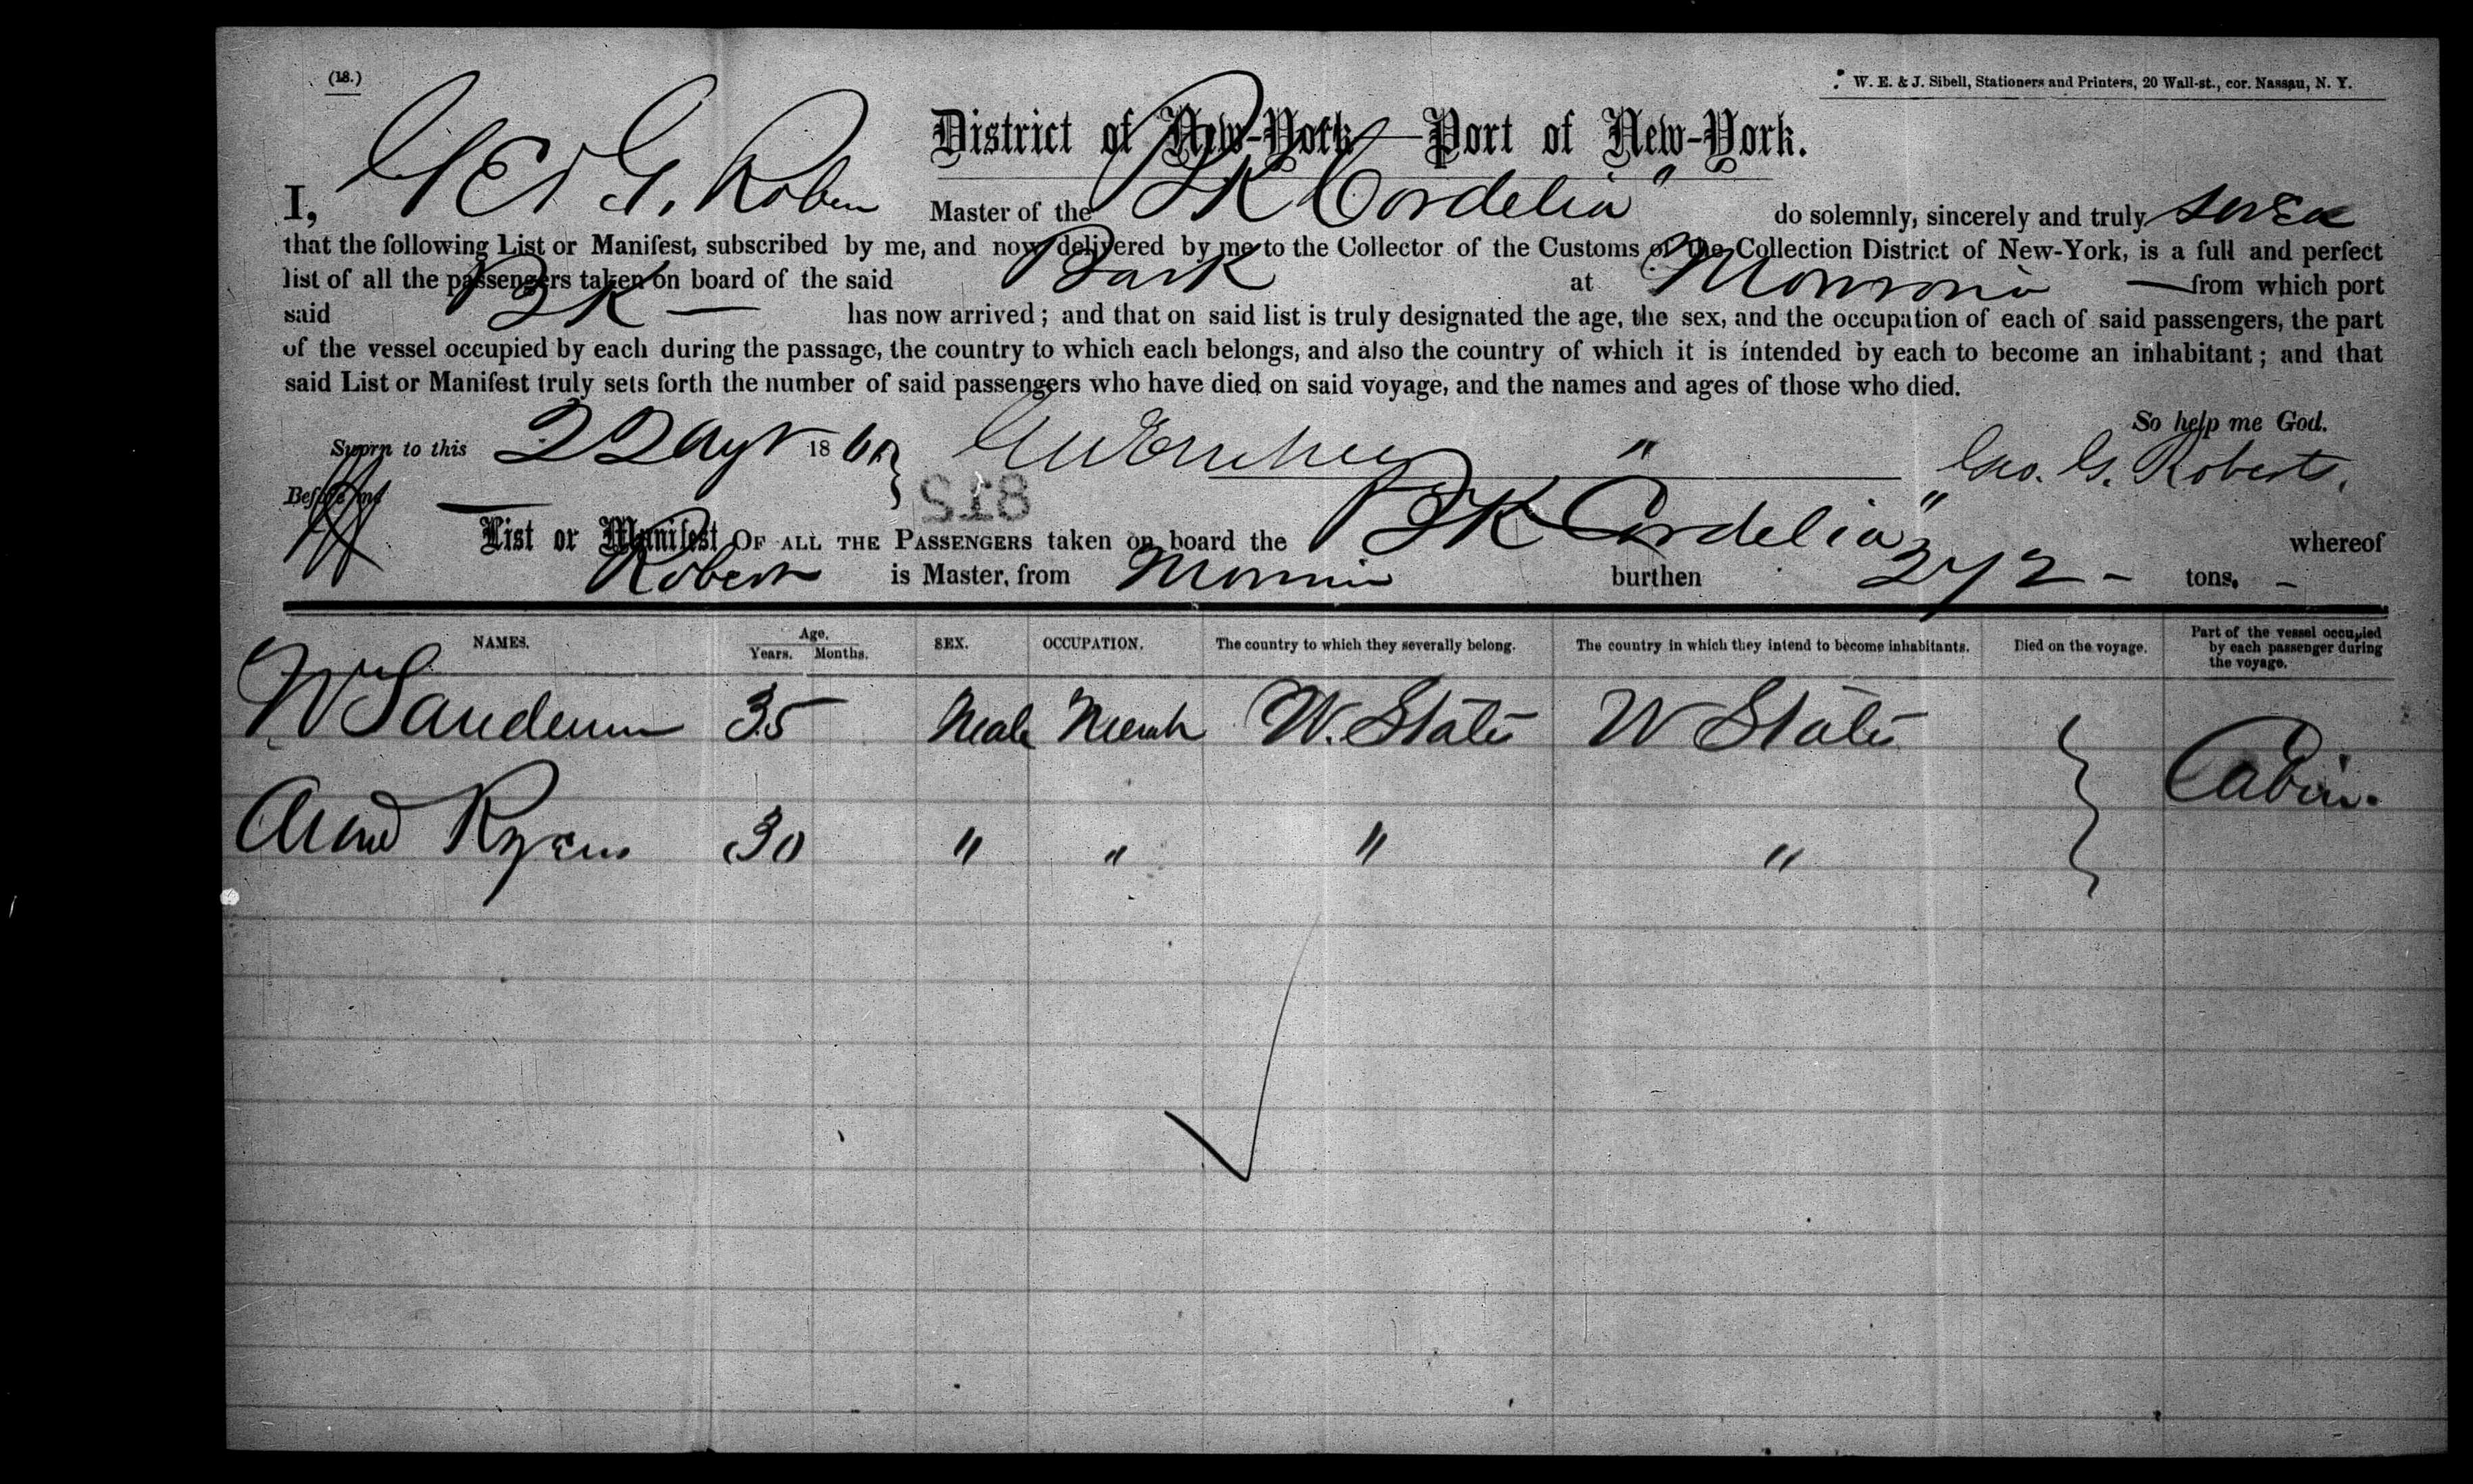 (18.)
W. E. & J. Sibell, Stationers and Printers, 20 Wall-st., cor. Nassau, N. Y.
District of New-York—Port of New-York.
I, Geo G. Rober Master of the BK "Cordelia" do solemnly, sincerely and truly swear
that the following List or Manifest, subscribed by me, and now delivered by me to the Collector of the Customs of the Collection District of New-York, is a full and perfect
list of all the passengers taken on board of the said Bark at from which port
said BK — has now arrived; and that on said list is truly designated the age, the sex, and the occupation of each of said passengers, the part
of the vessel occupied by each during the passage, the country to which each belongs, and also the country of which it is intended by each to become an inhabitant; and that
said List or Manifest truly sets forth the number of said passengers who have died on said voyage, and the names and ages of those who died.
So help me God.
Sworn to this 22 1860 Geo. G. Roberts.
Before me
218
List or Manifest OF ALL THE PASSENGERS taken on board the BK "Cordelia" whereof
Roberts is Master, from burthen 272 - tons. -
NAMES. Age. Years. Months. SEX. OCCUPATION. The country to which they severally belong. The country in which they intend to become inhabitants. Died on the voyage. Part of the vessel occupied by each passenger during the voyage.
35 Male U. States U States Cabin.
Ryan 30 " " " "